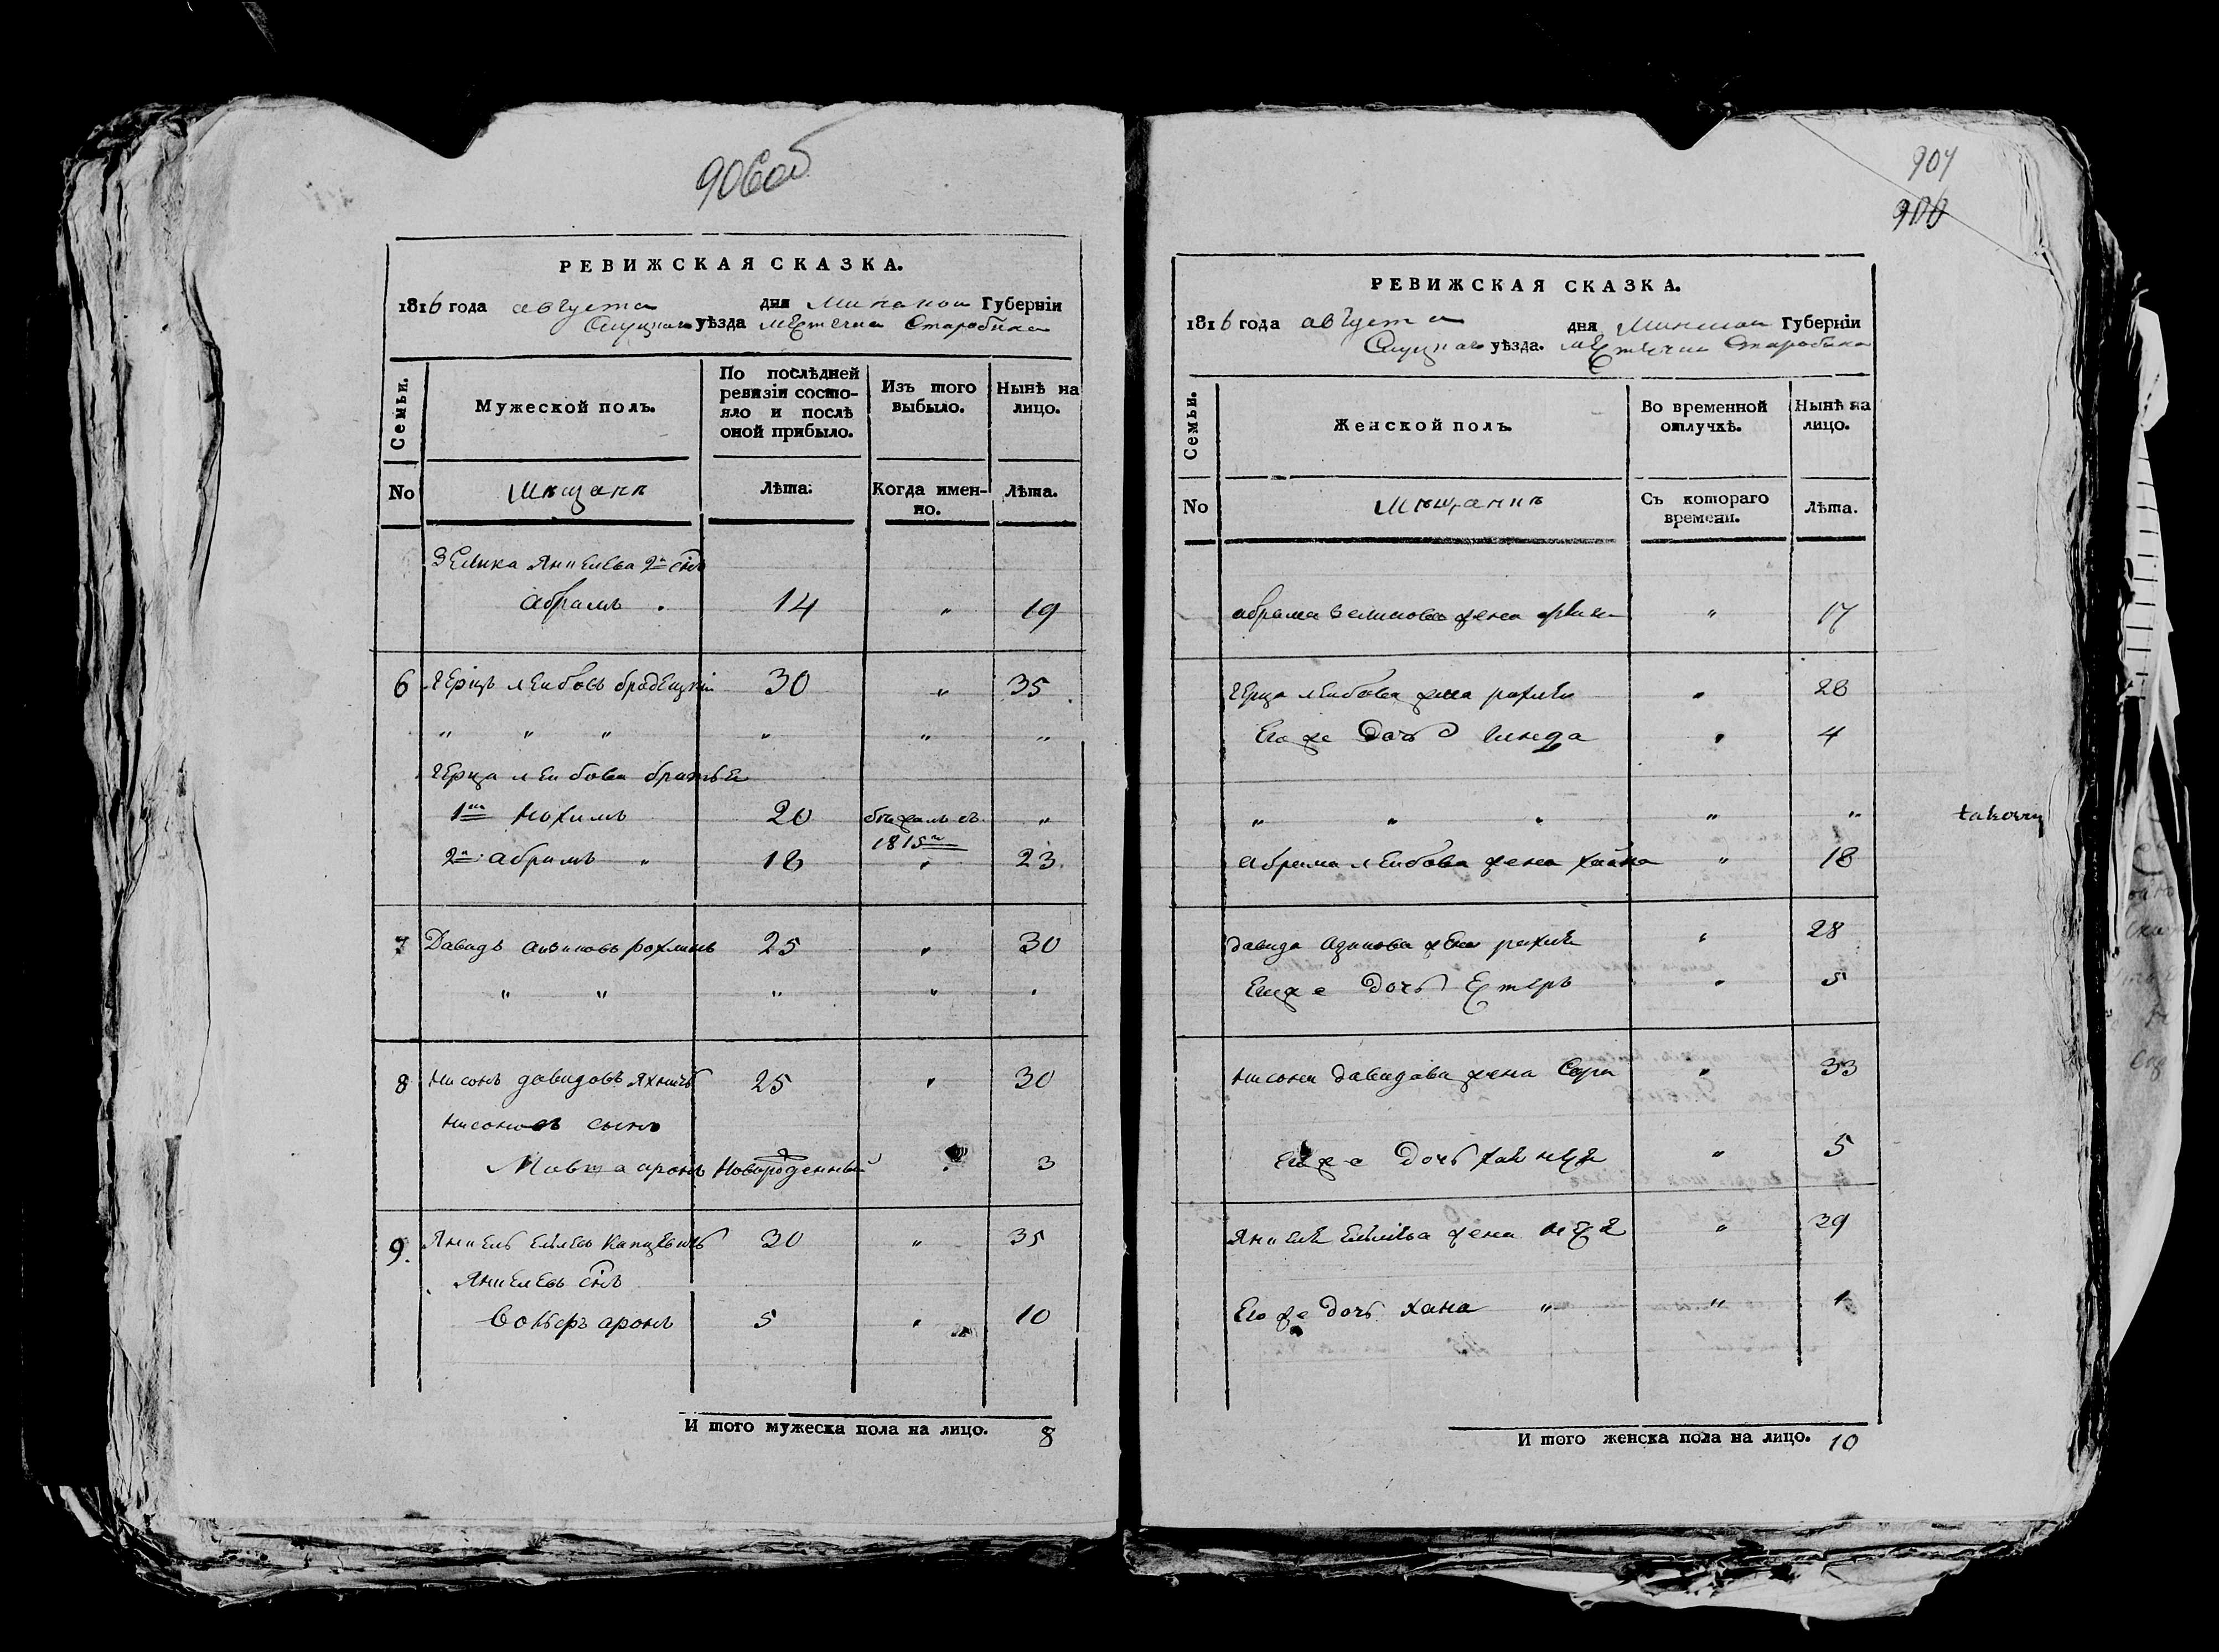 906об
РЕВИЖСКАЯ СКАЗКА.
1816 года августа дня Минской Губерніи
Слуцкаго уѣзда мѣстечка Старобина
Семьи.
Мужеской полъ.
По послѣдней ревизіи состояло и послѣ оной прибыло.
Изъ того выбыло.
Нынѣ на лицо.
No
Мѣщанѣ
Лѣта.
Когда именно.
Лѣта.
Зелика Янкелева 2й сынъ
Абрамъ 14 " 19
6 Герцъ Лейбовъ 30 " 35
" " " " " "
Герца Лейбова братья
1й Нохимъ 20 бежалъ въ 1815м "
2й Абрамъ " 18 " 23
7 Давидъ Айзиковъ Рохлинъ 25 " 30
" " " " "
8 Нисонъ Давидовъ Яхничъ 25 " 30
Нисоновъ сынъ
Мовша Аронъ Новорожденный " 3
9. Янкель 30 " 35
Янкелевъ сынъ
Аронъ 5 " 10
И того мужеска пола на лицо. 8
907
900
РЕВИЖСКАЯ СКАЗКА.
1816 года августа дня Минской Губерніи
Слуцкаго уѣзда. мѣстечка Старобина
Семьи.
Женской полъ.
Во временной отлучкѣ.
Нынѣ на лицо.
No
Мѣщанкѣ
Съ котораго времени.
Лѣта.
Абрама Зеликова жена " 17
Герца Лейбова жена Рохля " 28
Его же дочь " 4
" " " " "
Абрама Лейбова жена " 18
Давида Айзикова жена Рохля " 28
Его же дочь Естеръ " 5
Нисона Давидова жена Сора " 33
Его же дочь " 5
Янкеля жена " 29
Его же дочь Хана " " 1
И того женска пола на лицо. 10